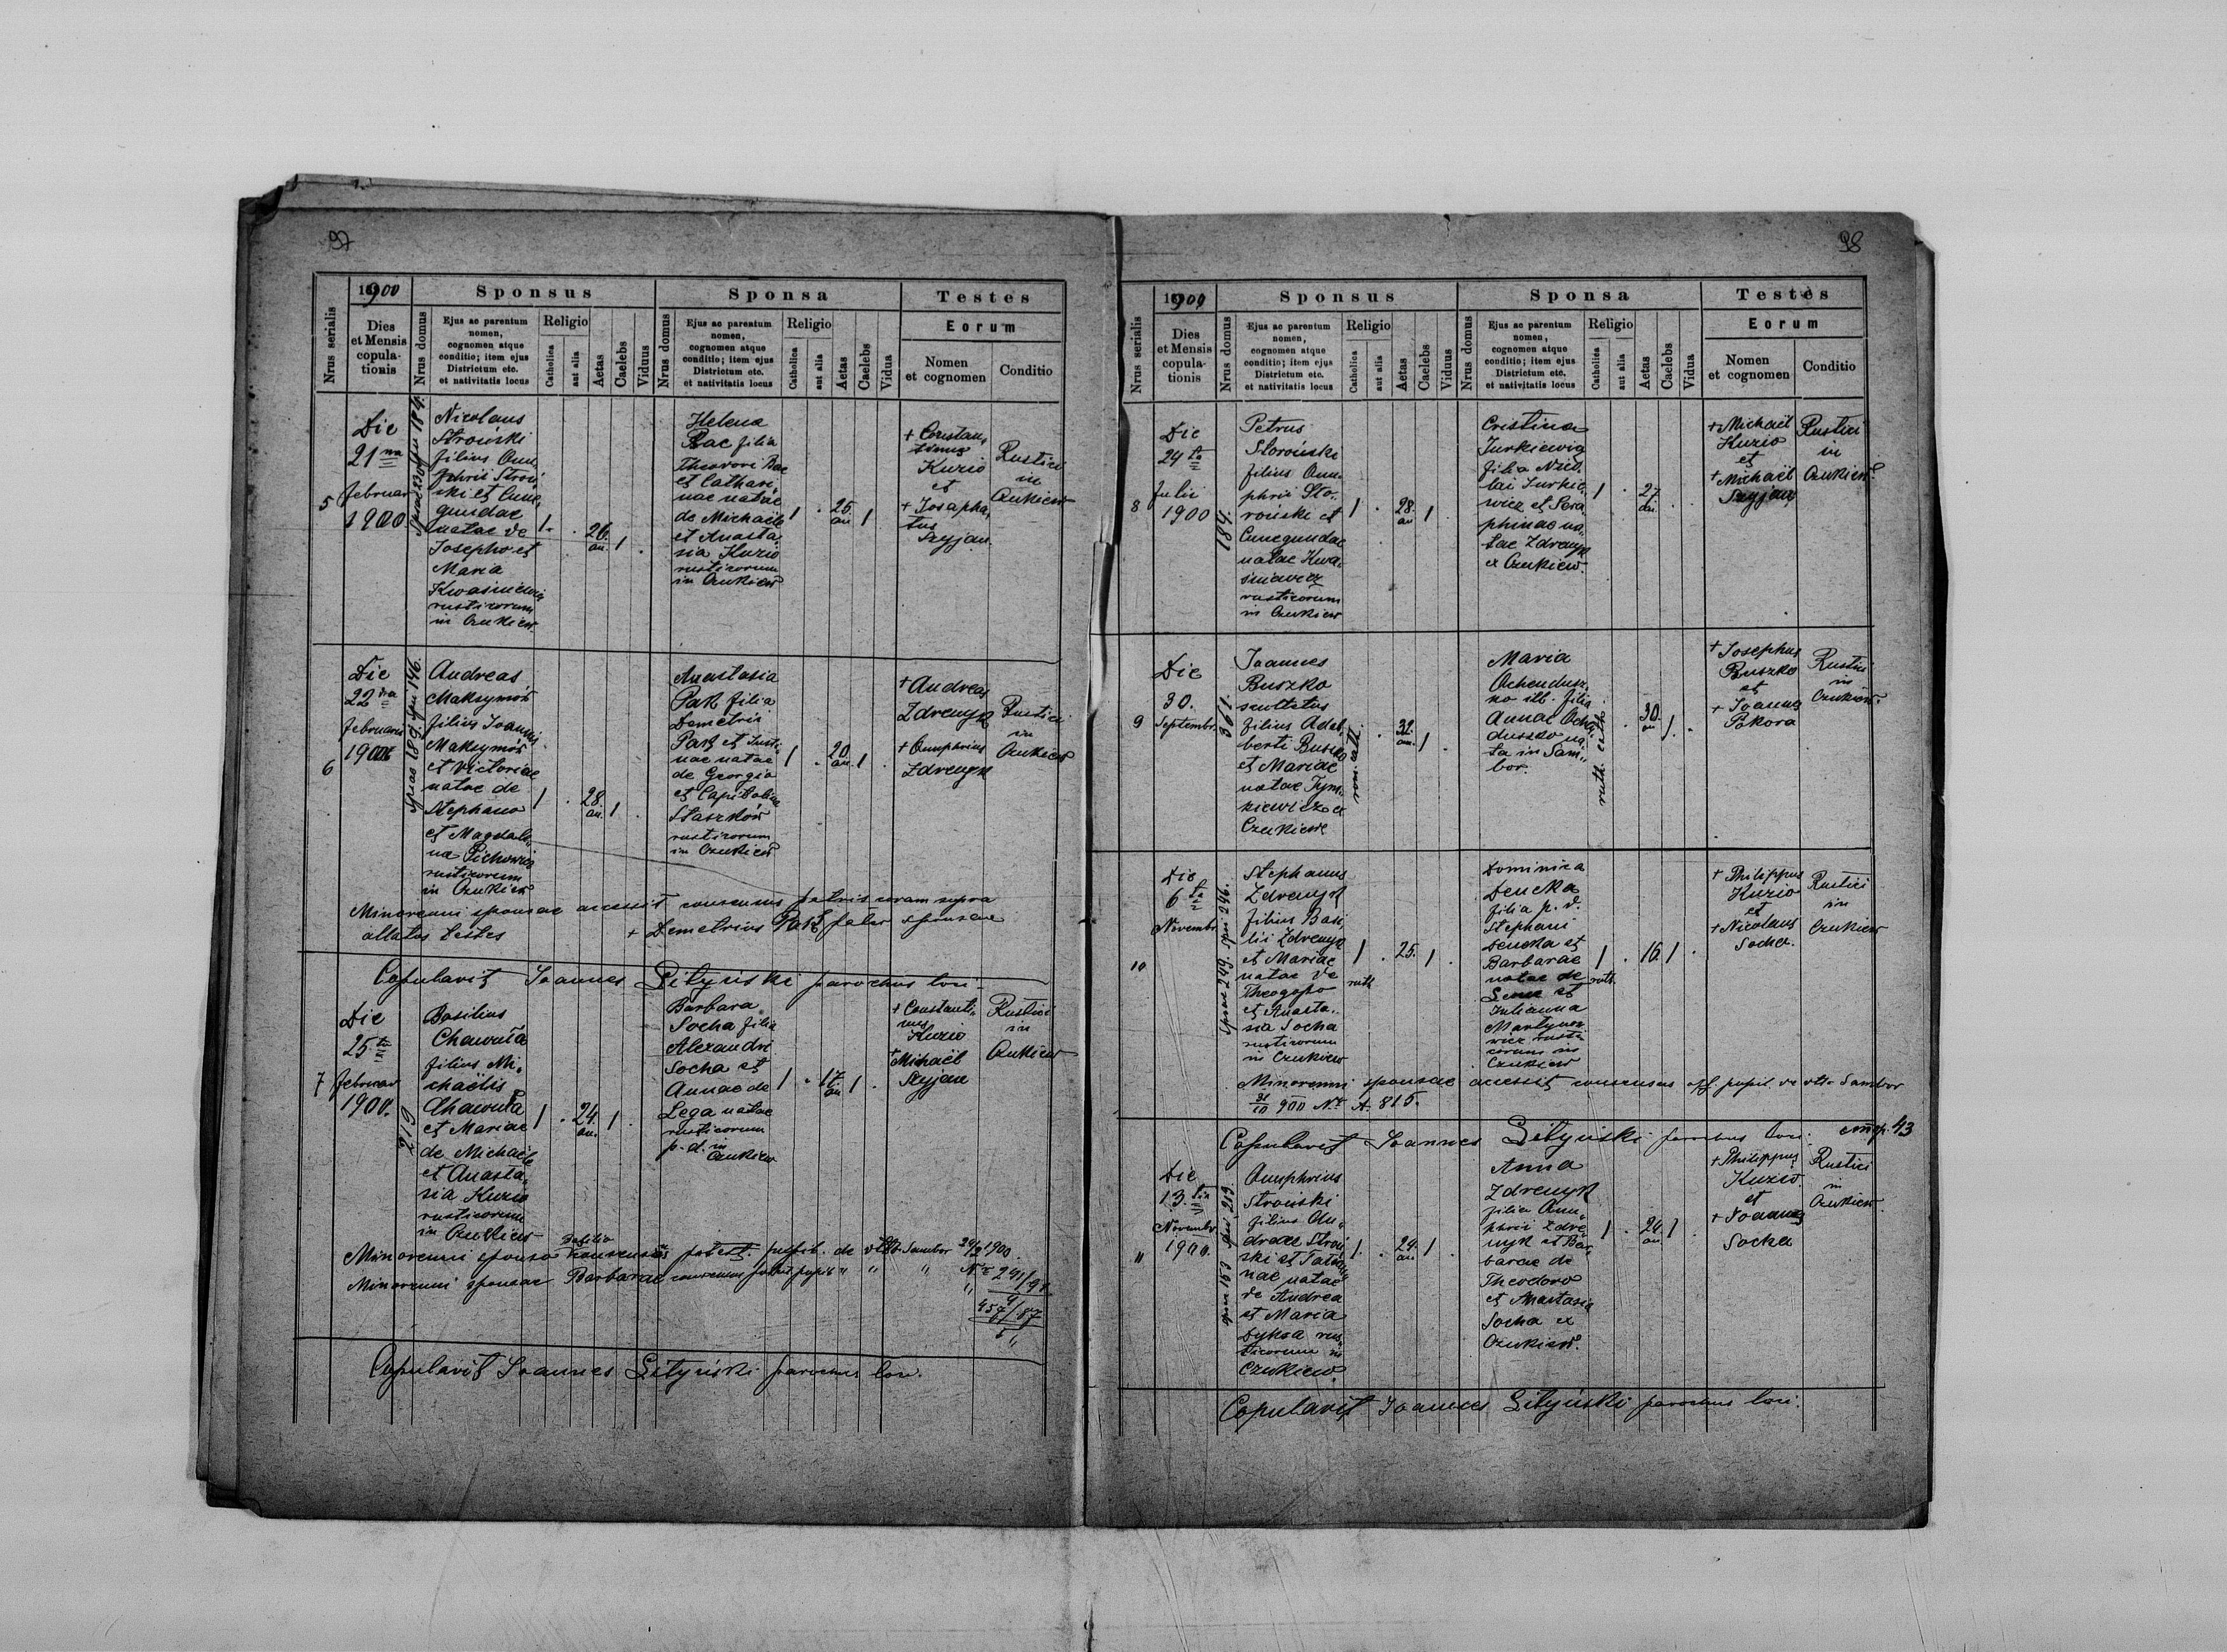 97
1900
Sponsus
Sponsa
Testes
Nrus serialis
Dies et Mensis copula- tionis
Nrus domus
Ejus ac parentum nomen, cognomen atque conditio; item ejus Districtum etc. et nativitatis locus
Religio
Catholica
aut alia
Aetas
Caelebs
Viduus
Nrus domus
Ejus ac parentum nomen, cognomen atque conditio; item ejus Districtum etc. et nativitatis locus
Religio
Catholica
aut alia
Aetas
Caelebs
Vidua
Eorum
Nomen et cognomen
Conditio
5
Die
21 ma
februar
1900
184.
Nicolaus
Stroński
filius Onu„
phrii Stroń„
ski et Cune„
gundae
natae de
Josepho et
Maria
Kwasniewicz
rusticorum
in Czukiew
1 . 26. an. 1 .
Helena
Bac filia
Theodori Bac
et Cathari„
nae natae
de Michaële
et Anasta„
sia Kuzio
rusticorum
in Czukiew
1 . 25. an 1 .
+ Constan„
tinus
Kuzio
et
+ Josapha„
tus
Szyjan.
Rustici
in
Czukiew
6
Die
22 da
februarii
1900
spsae 189. spsi 146.
Andreas
Maksymów
filius Joannis
Maksymów
et Victoriae
natae de
Stephano
et Magdale„
na Pichowicz
rusticorum
in Czukiew
1 . 28. an. 1 .
Anastasia
Pak filia
Demetrii
Pak et Justi„
nae natae
de Georgio
et Capitolina
Staszków
rusticorum
in Czukiew
1 . 20. an. 1 .
+ Andreas
Zdrenyk
+ Onuphrius
Zdrenyk
Rustici
in
Czukiew
Minorenni sponsae accessit consensus patris coram supra
allatos testes + Demetrius Pak pater sponsae
Copulavit Joannes Lityński parochus loci
7
Die
25 ta
februar
1900.
213
Basilius
Chawuła
filius Mi„
chaëlis
Chawuła
et Mariae
de Michaële
et Anasta„
sia Kuzio
rusticorum
in Czukiew
1 . 24. an. 1 .
Barbara
Socha filia
Alexandri
Socha et
Annae de
Lega natae
rusticorum
p. d. in
Czukiew
1 . 17. an 1 .
+ Constanti„
nus
Kuzio
+ Michaël
Szyjan
Rustici
in
Czukiew
Minorenni sponso Basilio consensus potest. pupil. de dtto Sambor 24/2 1900.
Minorenni sponsae Barbarae consensus potest pupil „ „ „ Nr 241/98
„ 457/87
Copulavit Joannes Lityński parochus loci.
98
1900
Sponsus
Sponsa
Testes
Nrus serialis
Dies et Mensis copula- tionis
Nrus domus
Ejus ac parentum nomen, cognomen atque conditio; item ejus Districtum etc. et nativitatis locus
Religio
Catholica
aut alia
Aetas
Caelebs
Viduus
Nrus domus
Ejus ac parentum nomen, cognomen atque conditio; item ejus Districtum etc. et nativitatis locus
Religio
Catholica
aut alia
Aetas
Caelebs
Vidua
Eorum
Nomen et cognomen
Conditio
8
Die
24 ta
Julii
1900
184.
Petrus
Storoński
filius Onu„
phrii Sto„
roński et
Cunegundae
natae Kwa„
śniewicz
rusticorum
in Czukiew
1 . 28. an 1 .
Cristina
Jurkiewicz
filia Nico„
lai Jurkie„
wicz et Sera„
phinae na„
tae Zdrenyk
ex Czukiew.
1 . 27. an. . .
+ Michaël
Kuzio
et
+ Michaël
Szyjan
Rustici
in
Czukiew.
9
Die
30.
Septembr.
361.
Joannes
Buszko
scultetus
filius Adal„
berti Buszko
et Mariae
natae Tym„
kiewicz ex
Czukiew
rom. cath.
. 32. an. 1 .
Maria
Ochendusz„
ko ill. filia
Annae Ochen„
duszko na„
ta in Sam„
bor.
ruth. cath.
. 30. an 1 .
+ Josephus
Buszko
et
+ Joannes
Pokora
Rustici
in
Czukiew.
10
Die
6 ta
Novembr.
spsae 249. spsi 246.
Stephanus
Zdrenyk
filius Basi„
lii Zdrenyk
et Mariae
natae de
Theogosto
et Anasta„
sia Socha
rusticorum
in Czukiew
1 . 25. 1 .
ruth
Dominica
Dencka
filia p. d.
Stephani
Dencka et
Barbarae
natae de
et
Julianna
Martyno„
wicz rusti„
corum in
Czukiew
1 . 16. 1 .
ruth.
+ Philippus
Kuzio
et
+ Nicolaus
Socha.
Rustici
in
Czukiew
Minorenni sponsae accessit consensus off. pupil. de dtto Sambor
31/10 900 Nr A. 815.
Copulavit Joannes Lityński parochus loci.
43
11
Die
13. tia
Novembr
1900.
spsae 153 spsi 213
Onuphrius
Stroński
filius An„
dreae Stroń„
ski et Tatia„
nae natae
de Andrea
et Maria
Dyksa rus„
ticorum in
Czukiew.
1 . 24. an 1 .
Anna
Zdrenyk
filia Onu„
phrii Zdre„
nyk et Bar„
barae de
Theodoro
et Anastasia
Socha ex
Czukiew.
1 . 24. an. 1 .
+ Philippus
Kuzio.
et
+ Joannes
Socha
Rustici
in
Czukiew.
Copulavit Joannes Lityński parochus loci.